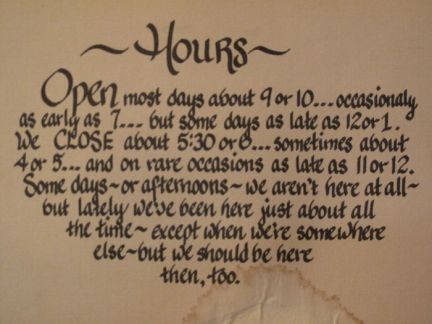 ~ Hours ~
Open most days about 9 or 10... occasionaly
as early as 7... but some days as late as 12 or 1.
We CLOSE about 5:30 or 6... sometimes about
4 or 5... and on rare occasions as late as 11 or 12.
Some days ~ or afternoons ~ we aren't here at all ~
but lately we've been here just about all
the time ~ except when we're somewhere
else ~ but we should be here
then, too.